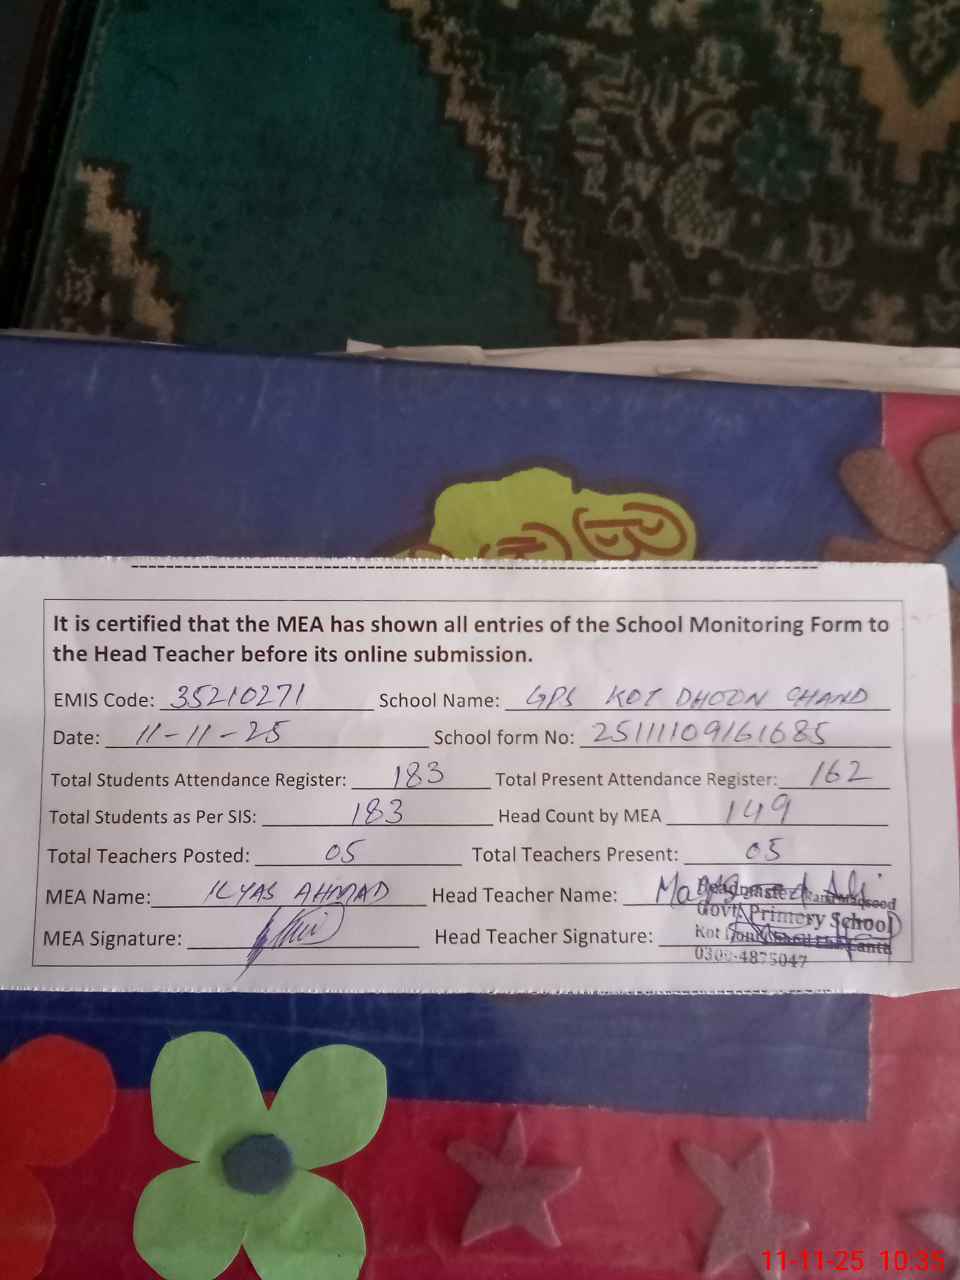 It is certified that the MEA has shown all entries of the School Monitoring Form to
the Head Teacher before its online submission.
EMIS Code: 35210271 School Name: GPS KOT DHOON CHAND
Date: 11-11-25 School form No: 25111109161685
Total Students Attendance Register: 183 Total Present Attendance Register: 162
Total Students as Per SIS: 183 Head Count by MEA 149
Total Teachers Posted: 05 Total Teachers Present: 05
MEA Name: ILYAS AHMAD Head Teacher Name:
Headmaster
Govt. Primery School
MEA Signature: Head Teacher Signature:
Kot
11-11-25 10:35